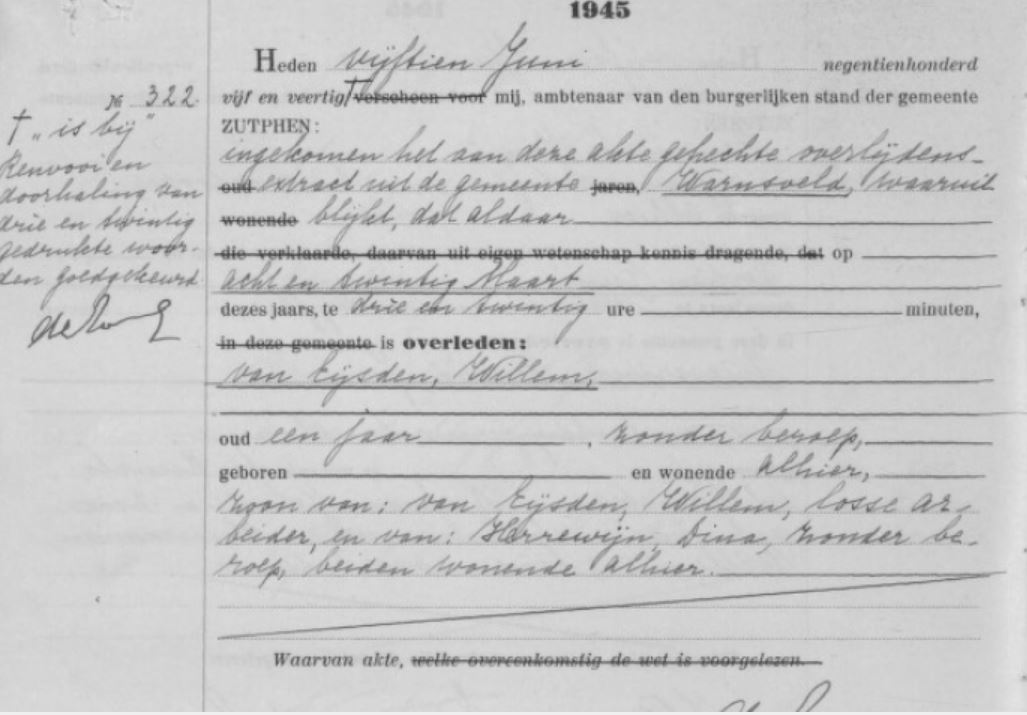 1945
Heden vijftien Juni negentienhonderd
№ 322
vijf en veertig † verscheen voor mij, ambtenaar van den burgerlijken stand der gemeente
ZUTPHEN:
† "is bij"
Renvooi en
doorhaling van
drie en twintig
gedrukte woor-
den goedgekeurd.
ingekomen het aan deze akte gehechte overlijdens-
oud extract uit de gemeente jaren, Warnsveld, waaruit
wonende blijkt, dat aldaar
die verklaarde, daarvan uit eigen wetenschap kennis dragende, dat op
acht en twintig Maart
dezes jaars, te drie en twintig ure minuten,
in deze gemeente is overleden:
van Eijsden, Willem,
oud een jaar, zonder beroep,
geboren en wonende alhier,
zoon van: van Eijsden, Willem, losse ar-
beider, en van: Herrewijn, Dina, zonder be-
roep, beiden wonende alhier.
Waarvan akte, welke overeenkomstig de wet is voorgelezen.